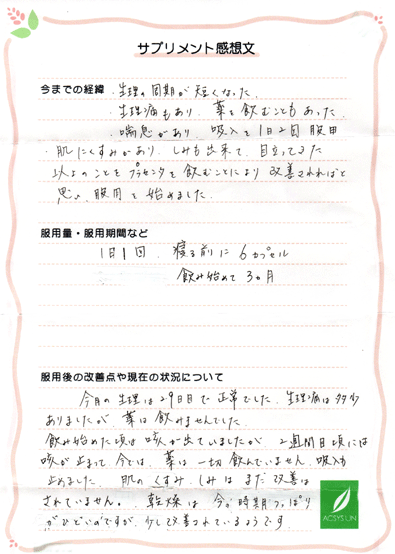 サプリメント感想文
今までの経緯 ・生理の周期が短くなった.
・生理痛もあり、薬を飲むこともあった.
・喘息があり、吸入を1日2回服用
・肌にくすみがあり、しみも出来て、目立ってきた
以上のことをプラセンタを飲むことにより改善されればと
思い、服用を始めました.
服用量・服用期間など
1日1回、寝る前に6カプセル
飲み始めて3ヵ月
服用後の改善点や現在の状況について
今月の生理は29日目で正常でした. 生理痛は多少
ありましたが、薬は飲みませんでした.
飲み始めた頃は咳が出ていましたが、2週間目頃には
咳が止まって、今では、薬は一切飲んでいません、吸入も
止めました. 肌のくすみ、しみはまだ改善は
されていません。乾燥は今が時期っぱり
がひどいのですが、少し改善されているようです
ACSYSUN